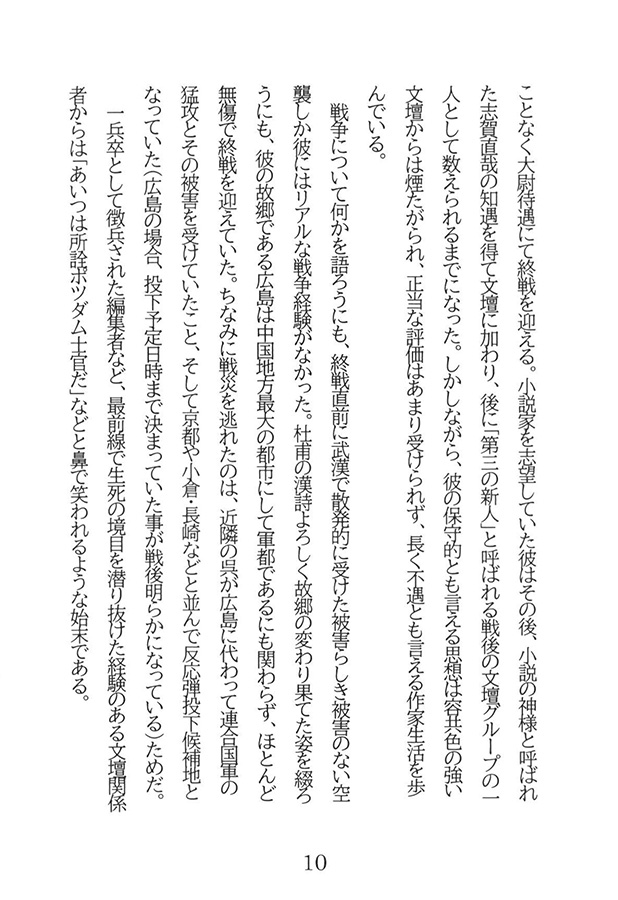 ことなく大尉待遇にて終戦を迎える。小説家を志望していた彼はその後、小説の神様と呼ばれ
た志賀直哉の知遇を得て文壇に加わり、後に「第三の新人」と呼ばれる戦後の文壇グループの一
人として数えられるまでになった。しかしながら、彼の保守的とも言える思想は容共色の強い
文壇からは煙たがられ、正当な評価はあまり受けられず、長く不遇とも言える作家生活を歩
んでいる。
戦争について何かを語ろうにも、終戦直前に武漢で散発的に受けた被害らしき被害のない空
襲しか彼にはリアルな戦争経験がなかった。杜甫の漢詩よろしく故郷の変わり果てた姿を綴ろ
うにも、彼の故郷である広島は中国地方最大の都市にして軍都であるにも関わらず、ほとんど
無傷で終戦を迎えていた。ちなみに戦災を逃れたのは、近隣の呉が広島に代わって連合国軍の
猛攻とその被害を受けていたこと、そして京都や小倉・長崎などと並んで反応弾投下候補地と
なっていた（広島の場合、投下予定日時まで決まっていた事が戦後明らかになっている）ためだ。
一兵卒として徴兵された編集者など、最前線で生死の境目を潜り抜けた経験のある文壇関係
者からは「あいつは所詮ポツダム士官だ」などと鼻で笑われるような始末である。
10